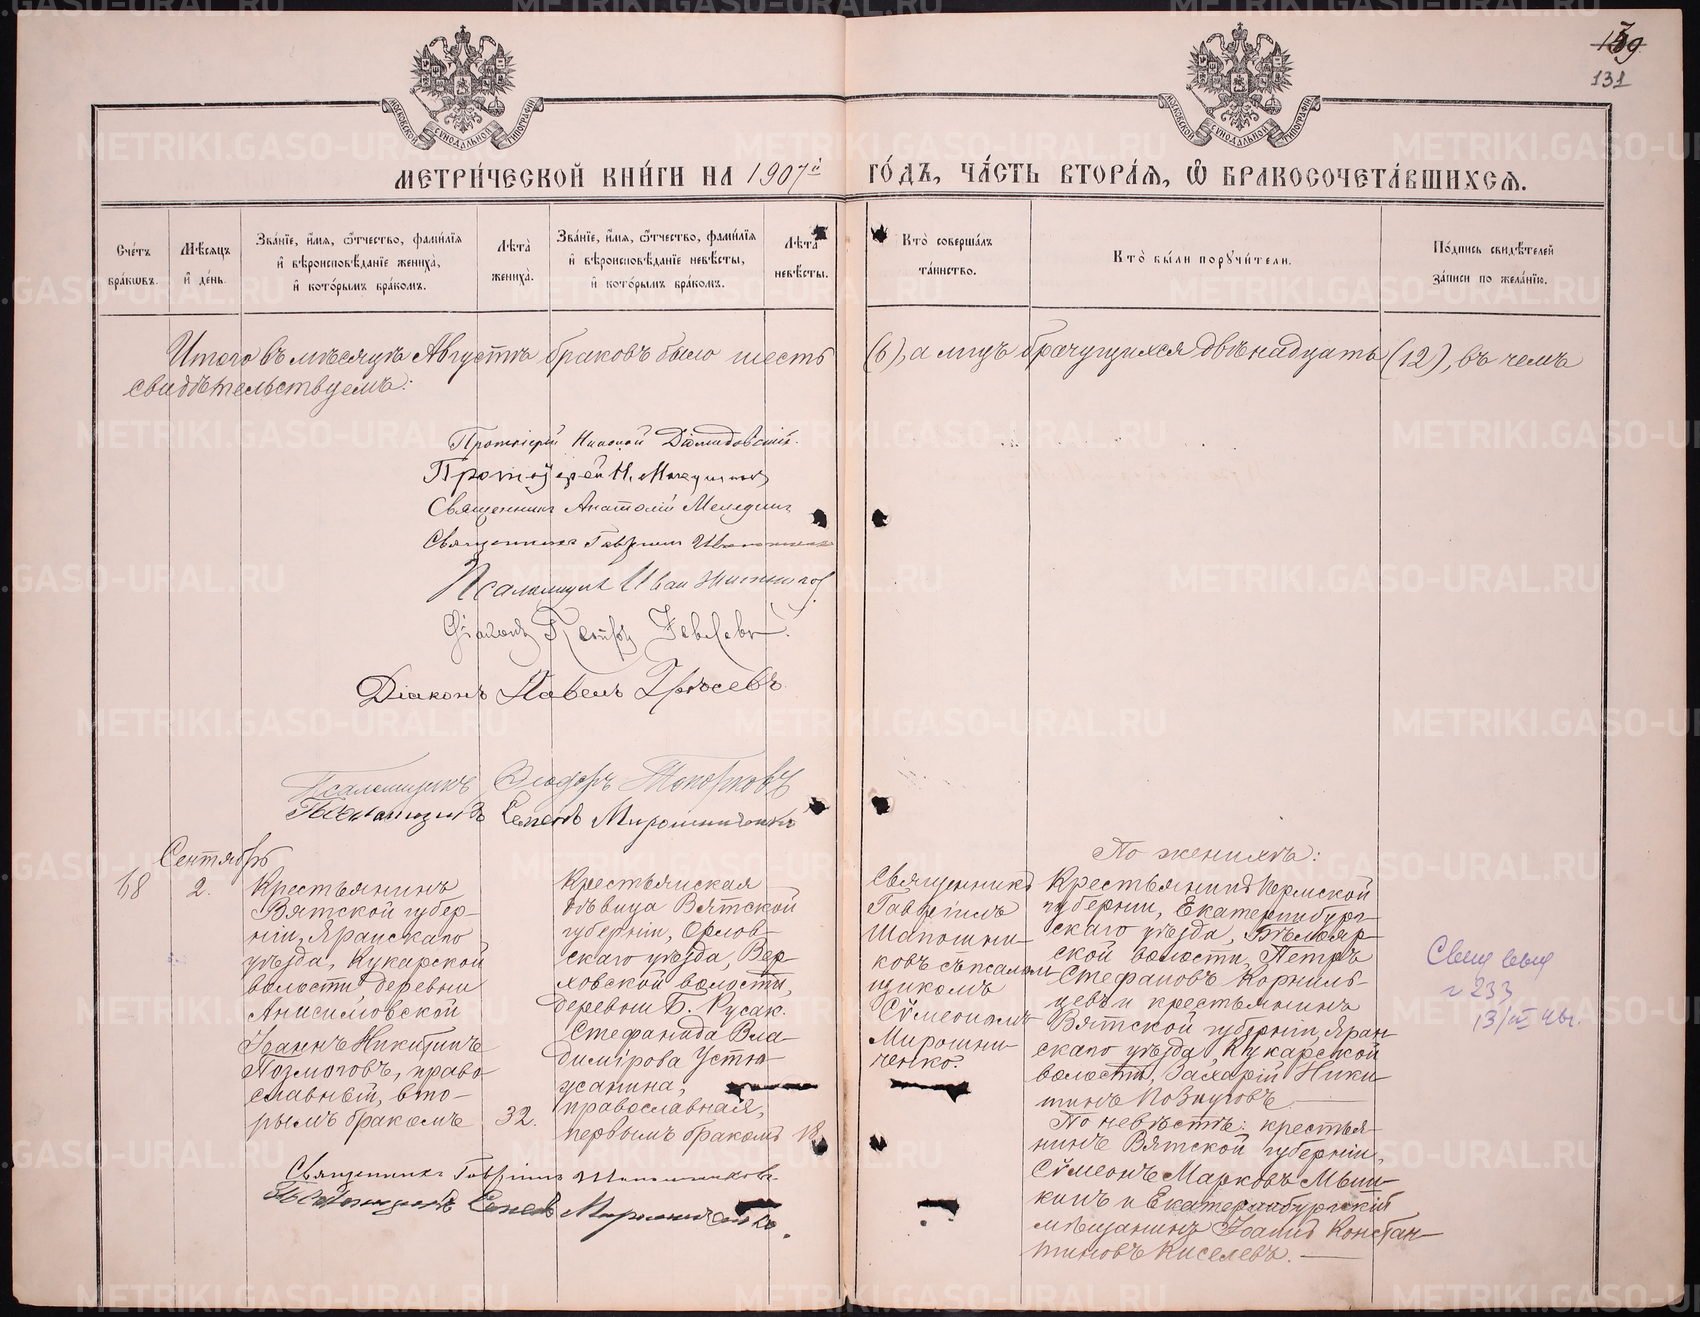 139
131
МОСКОВСКОЙ СУНОДАЛЬНОЙ ТИПОГРАФІИ
МОСКОВСКОЙ СУНОДАЛЬНОЙ ТИПОГРАФІИ
МЕТРИ́ЧЕСКОЙ КНИ́ГИ НА 1907й ГО́ДЪ, ЧА́СТЬ ВТОРА́Я, Ѽ БРАКОСОЧЕТА́ВШИХСЯ.
Сче́тъ бра́кѡвъ.
Мѣ́сяцъ и҆ де́нь.
Зва́нїе, и҆́мя, ѻ҆́тчество, фамилїя и҆ вѣроисповѣ́данїе жениха̀, и҆ кото́рымъ бра́комъ.
Лѣ́та̀ жениха̀.
Зва́нїе, и҆́мя, ѻ҆́тчество, фамилїя и҆ вѣроисповѣ́данїе невѣ́сты, и҆ кото́рымъ бра́комъ.
Лѣ́та̀ невѣ́сты.
Кто̀ соверша́лъ та́инство.
Кто̀ бы́ли порꙋчи́тели.
По́дпись свидѣ́телей за́писи по жела́нїю.
Итого въ мѣсяцѣ Августѣ браковъ было шесть (6), а лицъ брачущихся двѣнадцать (12), въ чемъ
свидѣтельствуемъ:
Протоіерей Николай
Протоіерей Н.
Священникъ Анатолій
Священникъ Гавріилъ
Псаломщикъ Иван
Діаконъ Петръ
Діаконъ Павелъ
Псаломщикъ Ѳеодоръ Токорковъ
Псаломщикъ Симеонъ Мирошниченко
Сентябрь
68
2.
Крестьянинъ
Вятской губер-
ніи, Яранскаго
уѣзда, Кукарской
волости деревни
Анисимовской
Іоаннъ Никитинъ
Позмоговъ, право-
славный, вто-
рымъ бракомъ
32.
Крестьянская
дѣвица Вятской
губерніи, Орлов-
скаго уѣзда, Вер-
ховской волости,
деревни Б. Кусак.
Стефанида Вла-
димірова Устю-
жанина,
православная,
первымъ бракомъ
18
Священникъ
Гавріилъ
Шапошни-
ковъ съ псалом-
щикомъ
Сѵмеономъ
Мирошни-
ченко.
По женихѣ:
Крестьянинъ Пермской
губерніи, Екатеринбург-
скаго уѣзда, Бѣлояр-
ской волости, Петръ
Стефановъ Корниль-
цевъ и крестьянинъ
Вятской губерніи, Яран-
скаго уѣзда, Кукарской
волости, Захарій Ники-
тинъ Позмоговъ
По невѣстѣ: крестья-
нинъ Вятской губерніи,
Сѵмеонъ Марковъ Мыш-
кинъ и Екатеринбургскій
мѣщанинъ Іоаннъ Констан-
тиновъ Киселевъ.
№ 233
Священникъ Гавріилъ Шапошниковъ
Псаломщикъ Симеонъ Мирошниченко.
METRIKI.GASO-URAL.RU